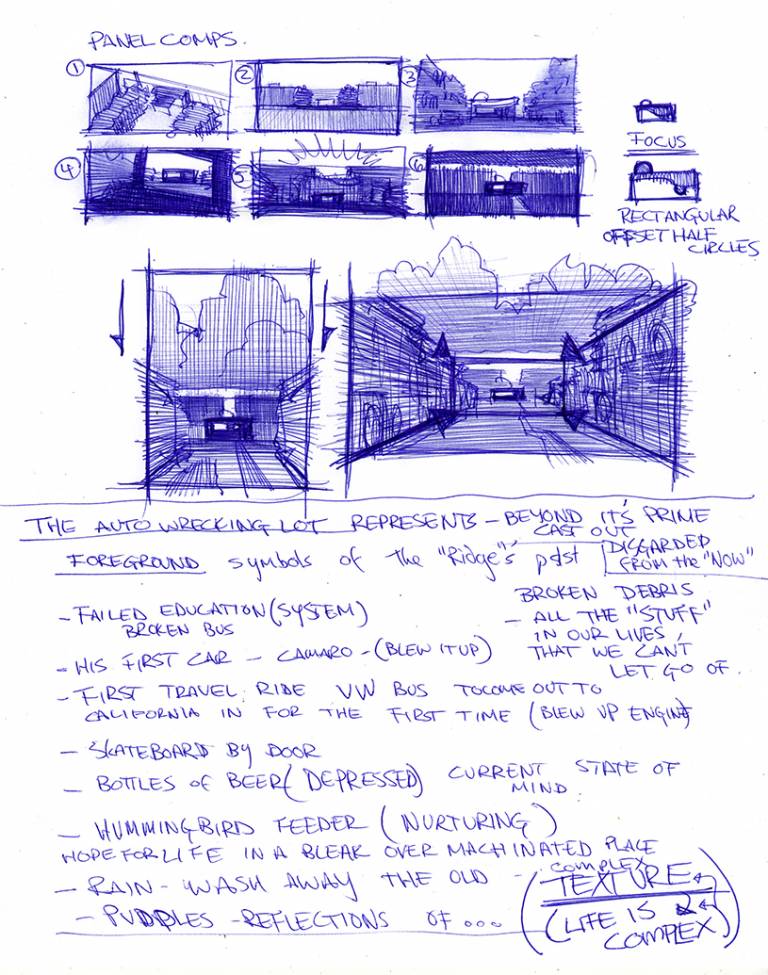 PANEL COMPS.
1
2
3
4
5
6
FOCUS
RECTANGULAR
OFFSET HALF
CIRCLES
THE AUTO WRECKING LOT REPRESENTS - BEYOND IT'S PRIME
CAST OUT
FOREGROUND symbols of the "Ridge's" past
DISGARDED
FROM the "NOW"
- FAILED EDUCATION (SYSTEM)
BROKEN BUS
BROKEN DEBRIS
- ALL THE "STUFF"
IN OUR LIVES,
THAT WE CAN'T
LET GO OF.
- HIS FIRST CAR - CAMARO - (BLEW IT UP)
- FIRST TRAVEL RIDE VW BUS TO COME OUT TO
CALIFORNIA IN FOR THE FIRST TIME (BLEW UP ENGINE)
- SKATEBOARD BY DOOR
- BOTTLES of BEER (DEPRESSED) CURRENT STATE OF
MIND.
- HUMMINGBIRD FEEDER (NURTURING)
HOPE FOR LIFE IN A BLEAK OVER MACHINATED PLACE
- RAIN - WASH AWAY THE OLD -
COMPLEX
TEXTURE
(LIFE IS
COMPLEX)
- PUDDLES - REFLECTIONS OF ...